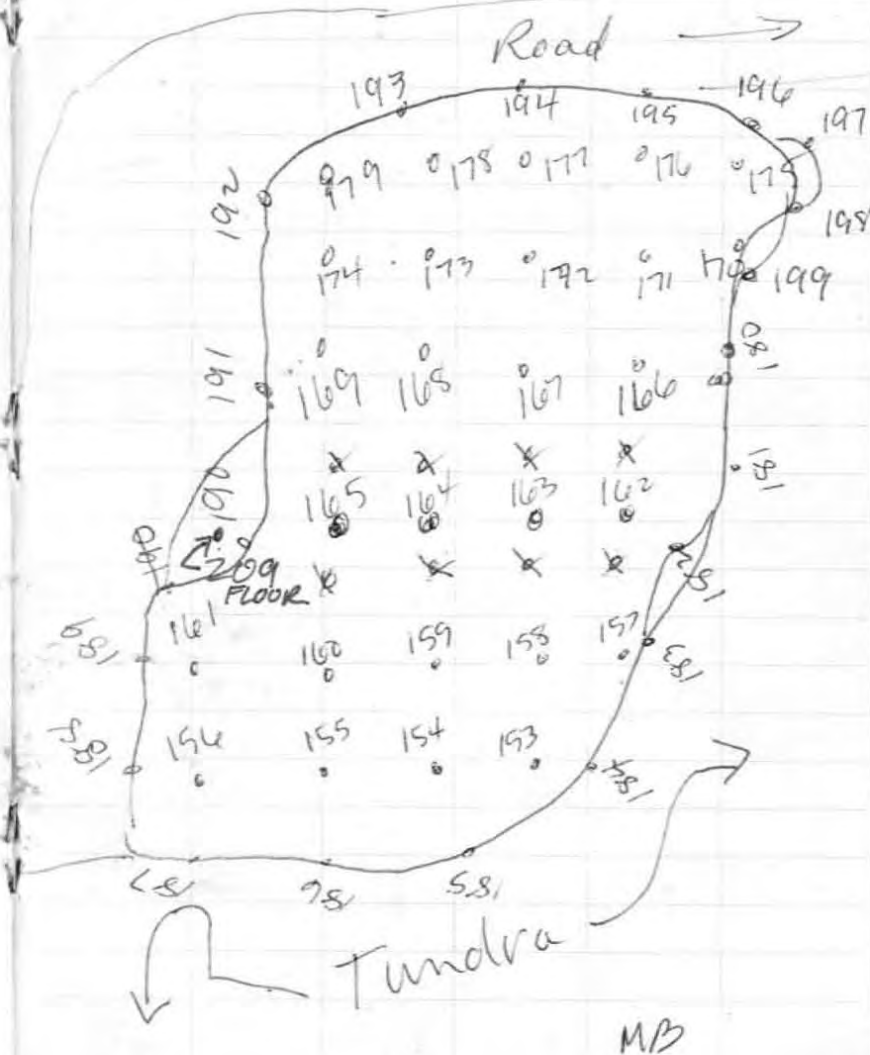 Road
193 194 195 196
197
179 178 177 176 175
192
198
174 173 172 171 170
199
180
191
169 168 167 166
181
190
165 164 163 162
182
209
FLOOR
161 160 159 158 157
189
183
188
156 155 154 153
184
187 186 185
Tundra
MB